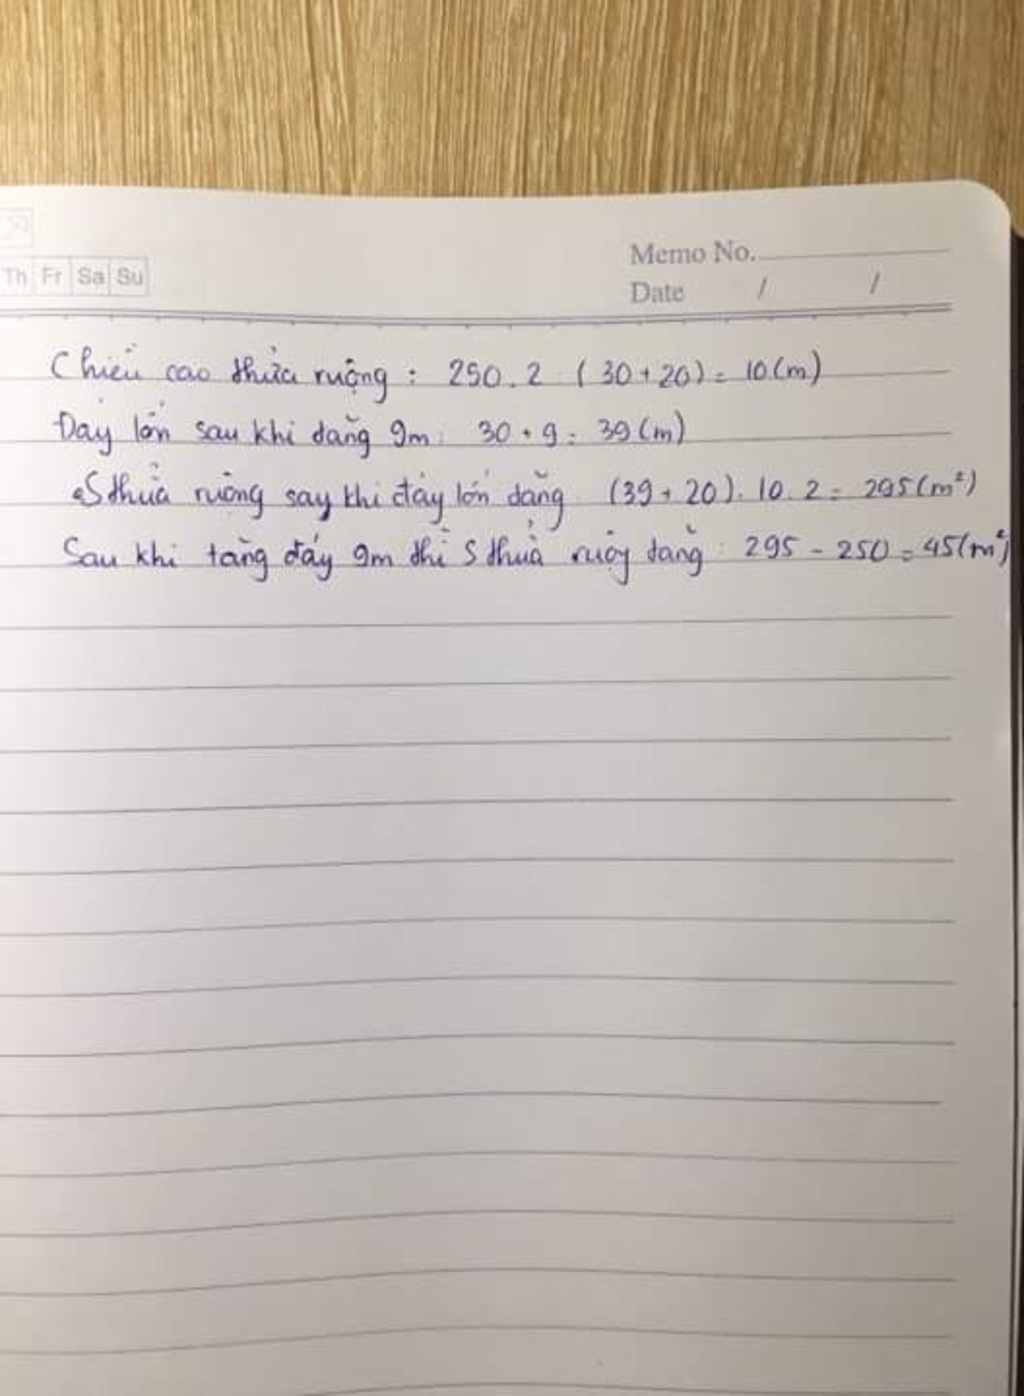 Th Fr Sa Su
Memo No.
Date / /
Chiều cao thửa ruộng : 250 . 2 (30 + 20) = 10 (m)
Đáy lớn sau khi tăng 9m : 30 + 9 = 39 (m)
S thửa ruộng say khi đáy lớn tăng (39 + 20) . 10 . 2 = 295 (m²)
Sau khi tăng đáy 9m thì S thửa ruộg tăng : 295 - 250 = 45 (m²)